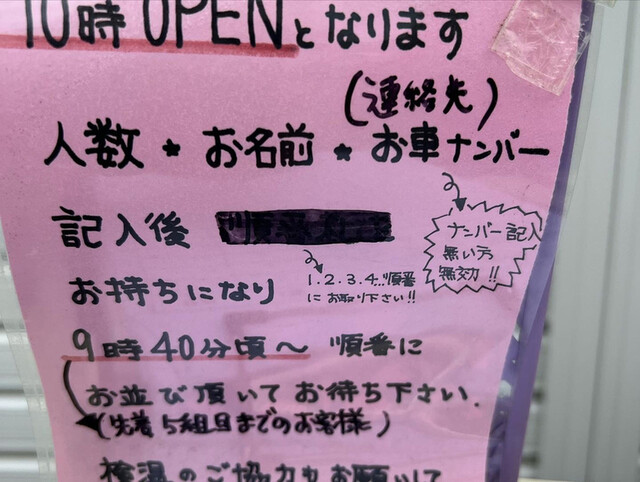 10時 OPENとなります
(連絡先)
人数 * お名前 * お車ナンバー
記入後
ナンバー記入
無い方
無効!!
お持ちになり
1.2.3.4…順番
にお取り下さい!!
9時40分頃〜 順番に
お並び頂いてお待ち下さい.
(先着5組目までのお客様)
検温のご協力もお願いして